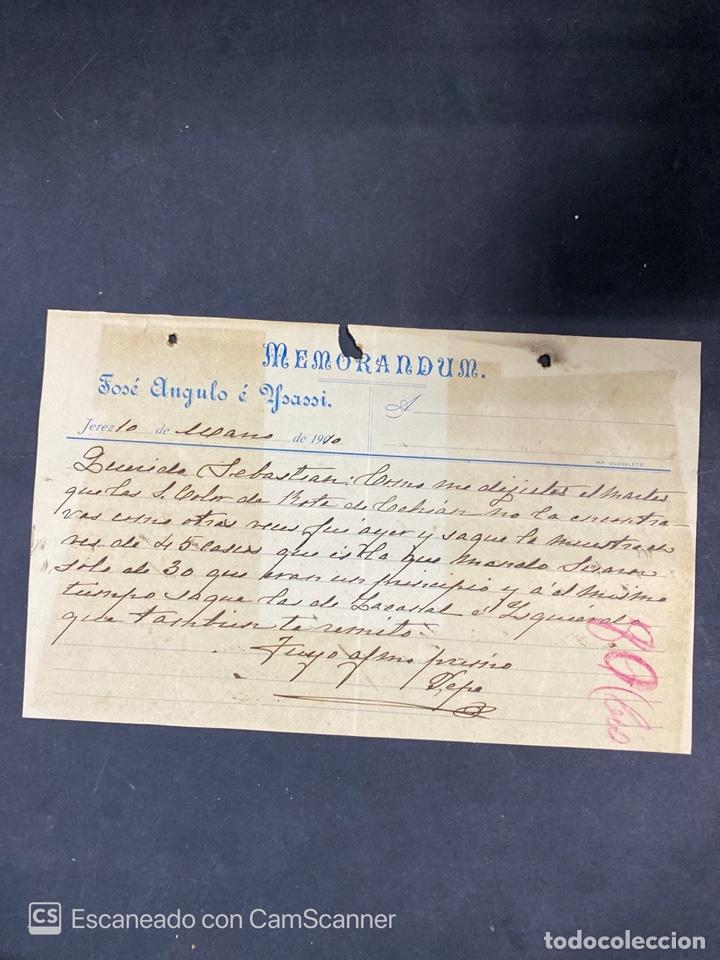 MEMORANDUM.
José Angulo é Ysassi.
A
Jerez 10 de Marzo de 1910
IMP. GUADALETE
Querido Sebastian: Como me dijistes el martes
que las S. Color de Rota de no la encontra-
vas como otras veces fui ayer y saque la muestra en
ves de 45 cascos que es la que mando Suarez
solo de 30 que eran un principio y á el mismo
tiempo saque las de Lacastal é Izquierdo
que tambien te remito.
Tuyo afmo primo
Pepe
80
CS Escaneado con CamScanner
todocoleccion